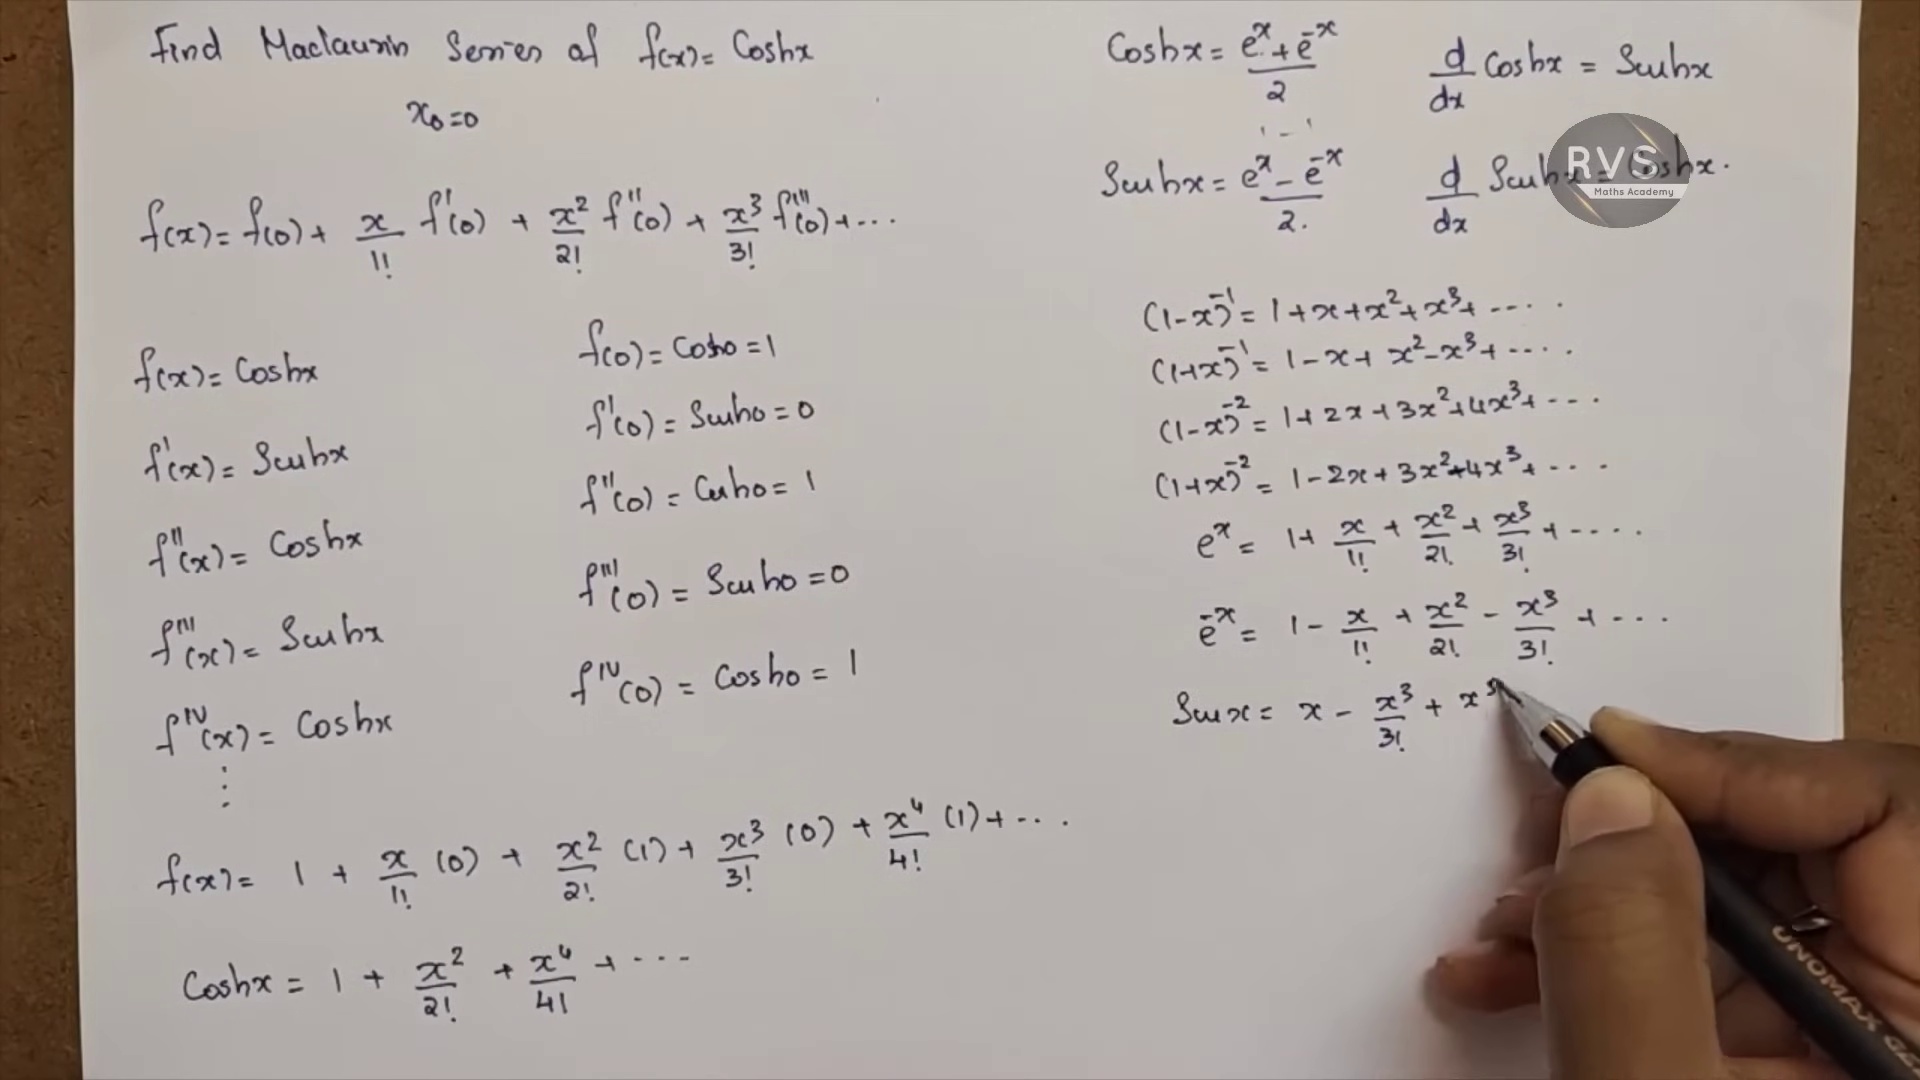 Find Maclaurin Series of f(x) = Coshx
x₀=0
f(x) = f(0) + x/1! f'(0) + x²/2! f''(0) + x³/3! f'''(0) + ...
f(x) = Coshx
f'(x) = Sinhx
f''(x) = Coshx
f'''(x) = Sinhx
f^IV(x) = Coshx
⋮
f(0) = Cosh0 = 1
f'(0) = Sinh0 = 0
f''(0) = Cosh0 = 1
f'''(0) = Sinh0 = 0
f^IV(0) = Cosh0 = 1
f(x) = 1 + x/1! (0) + x²/2! (1) + x³/3! (0) + x⁴/4! (1) + ...
Coshx = 1 + x²/2! + x⁴/4! + ...
Coshx = (e^x + e^-x)/2
d/dx Coshx = Sinhx
Sinhx = (e^x - e^-x)/2.
d/dx Sinhx = Coshx.
RVS
Maths Academy
(1-x)^-1 = 1 + x + x² + x³ + ....
(1+x)^-1 = 1 - x + x² - x³ + ....
(1-x)^-2 = 1 + 2x + 3x² + 4x³ + ...
(1+x)^-2 = 1 - 2x + 3x² - 4x³ + ...
e^x = 1 + x/1! + x²/2! + x³/3! + ....
e^-x = 1 - x/1! + x²/2! - x³/3! + ...
Sinx = x - x³/3! + x
UNOMAX